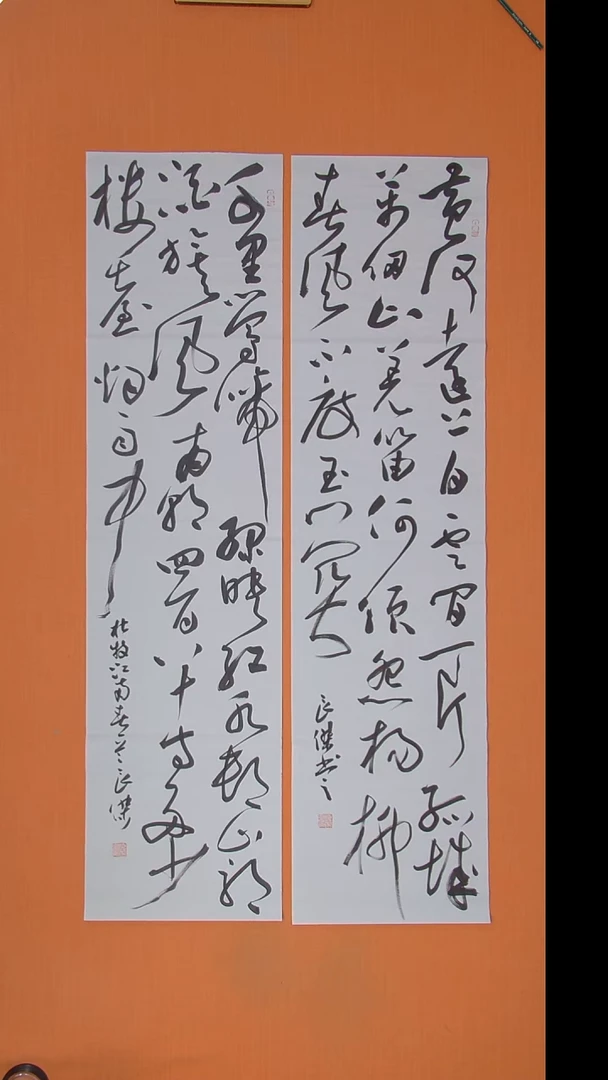 黄河遠上白雲間一片孤城
萬仞山羌笛何须怨杨柳
春風不度玉门関
良傑书之
千里莺啼绿映红水邨山郭
酒旗風南朝四百八十寺多少
楼臺烟雨中
杜牧江南春 良傑